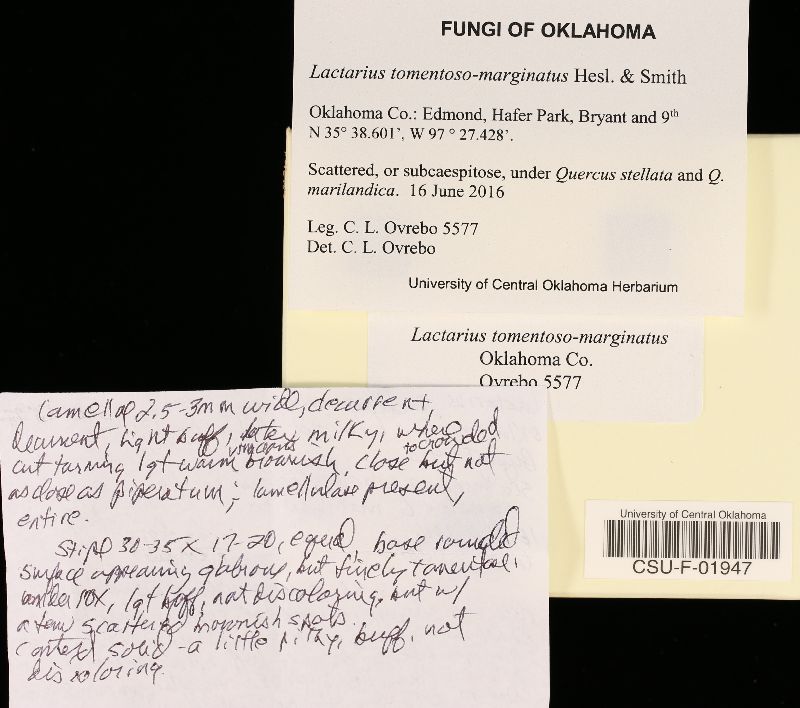 FUNGI OF OKLAHOMA
Lactarius tomentoso-marginatus Hesl. & Smith
Oklahoma Co.: Edmond, Hafer Park, Bryant and 9th
N 35° 38.601’, W 97 ° 27.428’.
Scattered, or subcaespitose, under Quercus stellata and Q.
marilandica. 16 June 2016
Leg. C. L. Ovrebo 5577
Det. C. L. Ovrebo
University of Central Oklahoma Herbarium
Lactarius tomentoso-marginatus
Oklahoma Co.
Ovrebo 5577
University of Central Oklahoma
CSU-F-01947
Lamellae 2.5-3mm wide, decurrent,
decurrent, light buff, latex milky, where
cut turning lgt warm brownish, close to crowded but not
as close as piperatum; lamellulae present,
entire.
Stipe 30-35 x 17-20, equal, base rounded
surface appearing glabrous, but finely tomentose
under 10x, lgt buff, not discoloring, but w/
a few scattered brownish spots.
context solid - a little pithy, buff, not
discoloring.